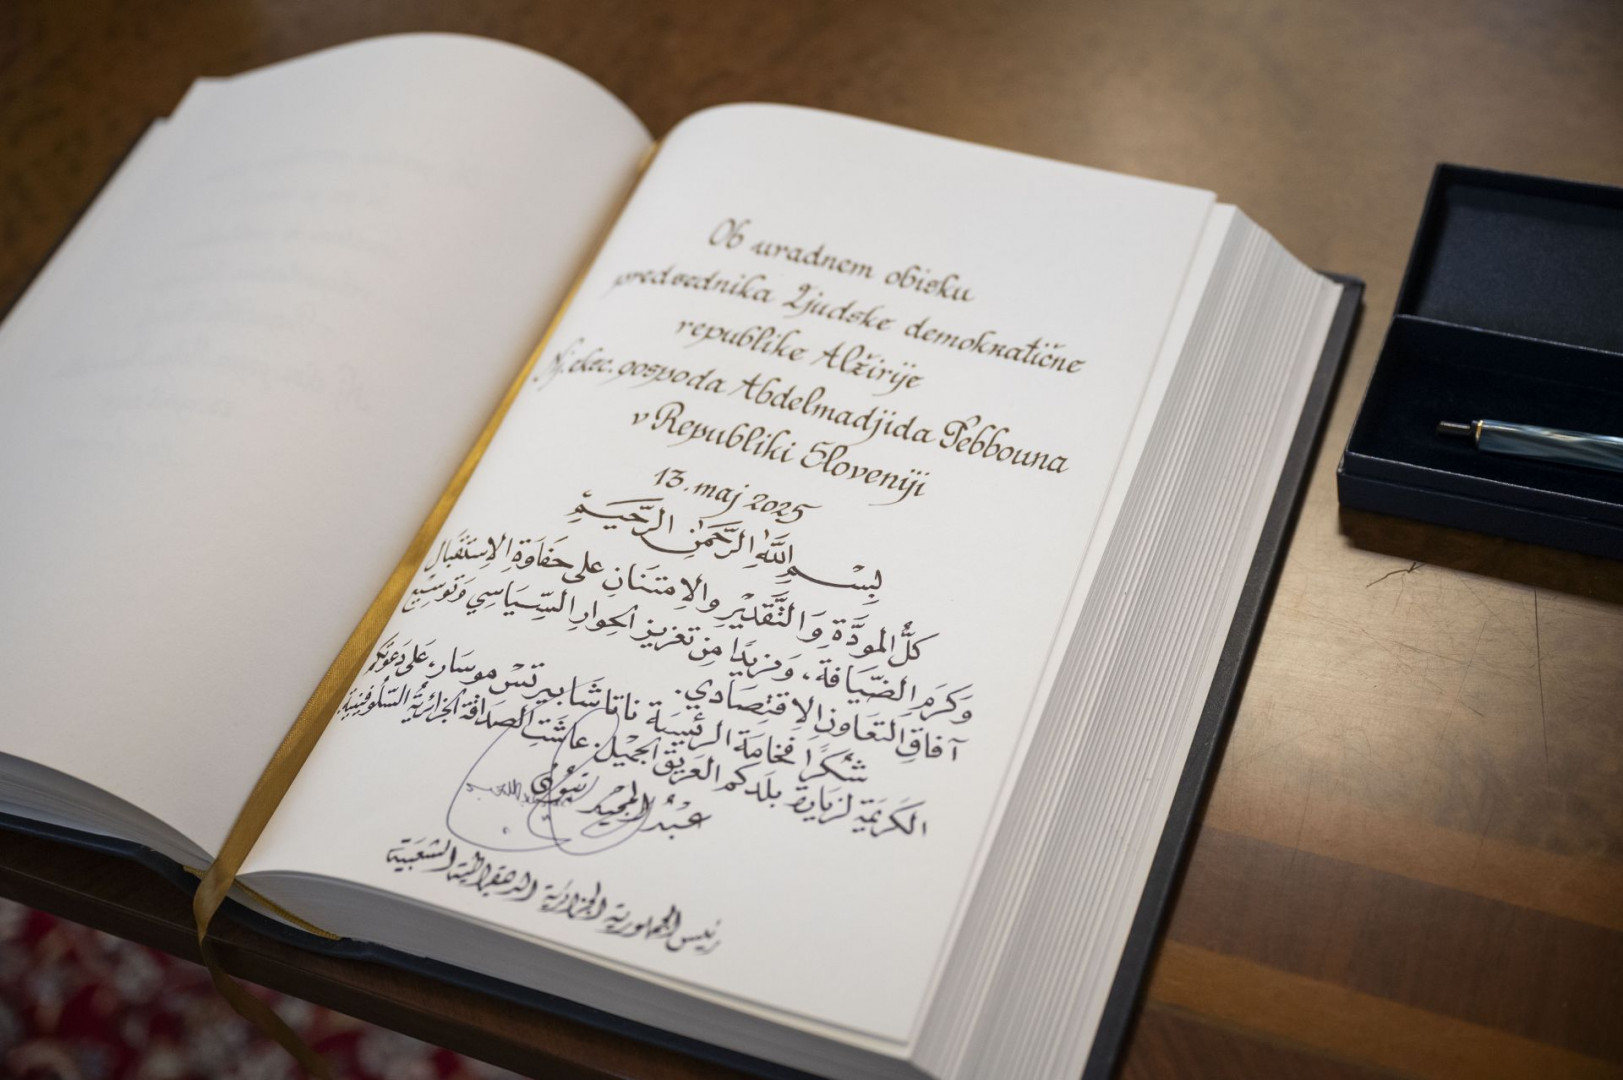 Ob uradnem obisku
predsednika Ljudske demokratične
republike Alžirije
Nj. eksc. gospoda Abdelmadjida Tebbouna
v Republiki Sloveniji
13. maj 2025
بِسْمِ اللَّهِ الرَّحْمَنِ الرَّحِيمِ
كلُّ المودَّة وَ التَّقْدِيرِ والامتنَانِ على حَفَاوَةِ الاِسْتَقْبَالِ
وَكَرَمِ الضّيَافة، وَمزيدًا مِن تعزيز الحِوارِ السِّيَاسِي وَتوسِيعِ
آفاقِ التعَاونِ الاِقتِصَادي.
شكرًا فخامَة الرئيسَة ناتاشَا بيرتسْ موسَار، على دَعوَتكم
الكَريَمَةِ لزيَارة بلَدكم العَريق الجميل. عاشَتِ الصدَاقة الجزائريَّة السّلوفينيَّة.
عَبْدُ المَجِيْد تبُّون
رئيس الجمهورية الجزائرية الديمقراطية الشعبية